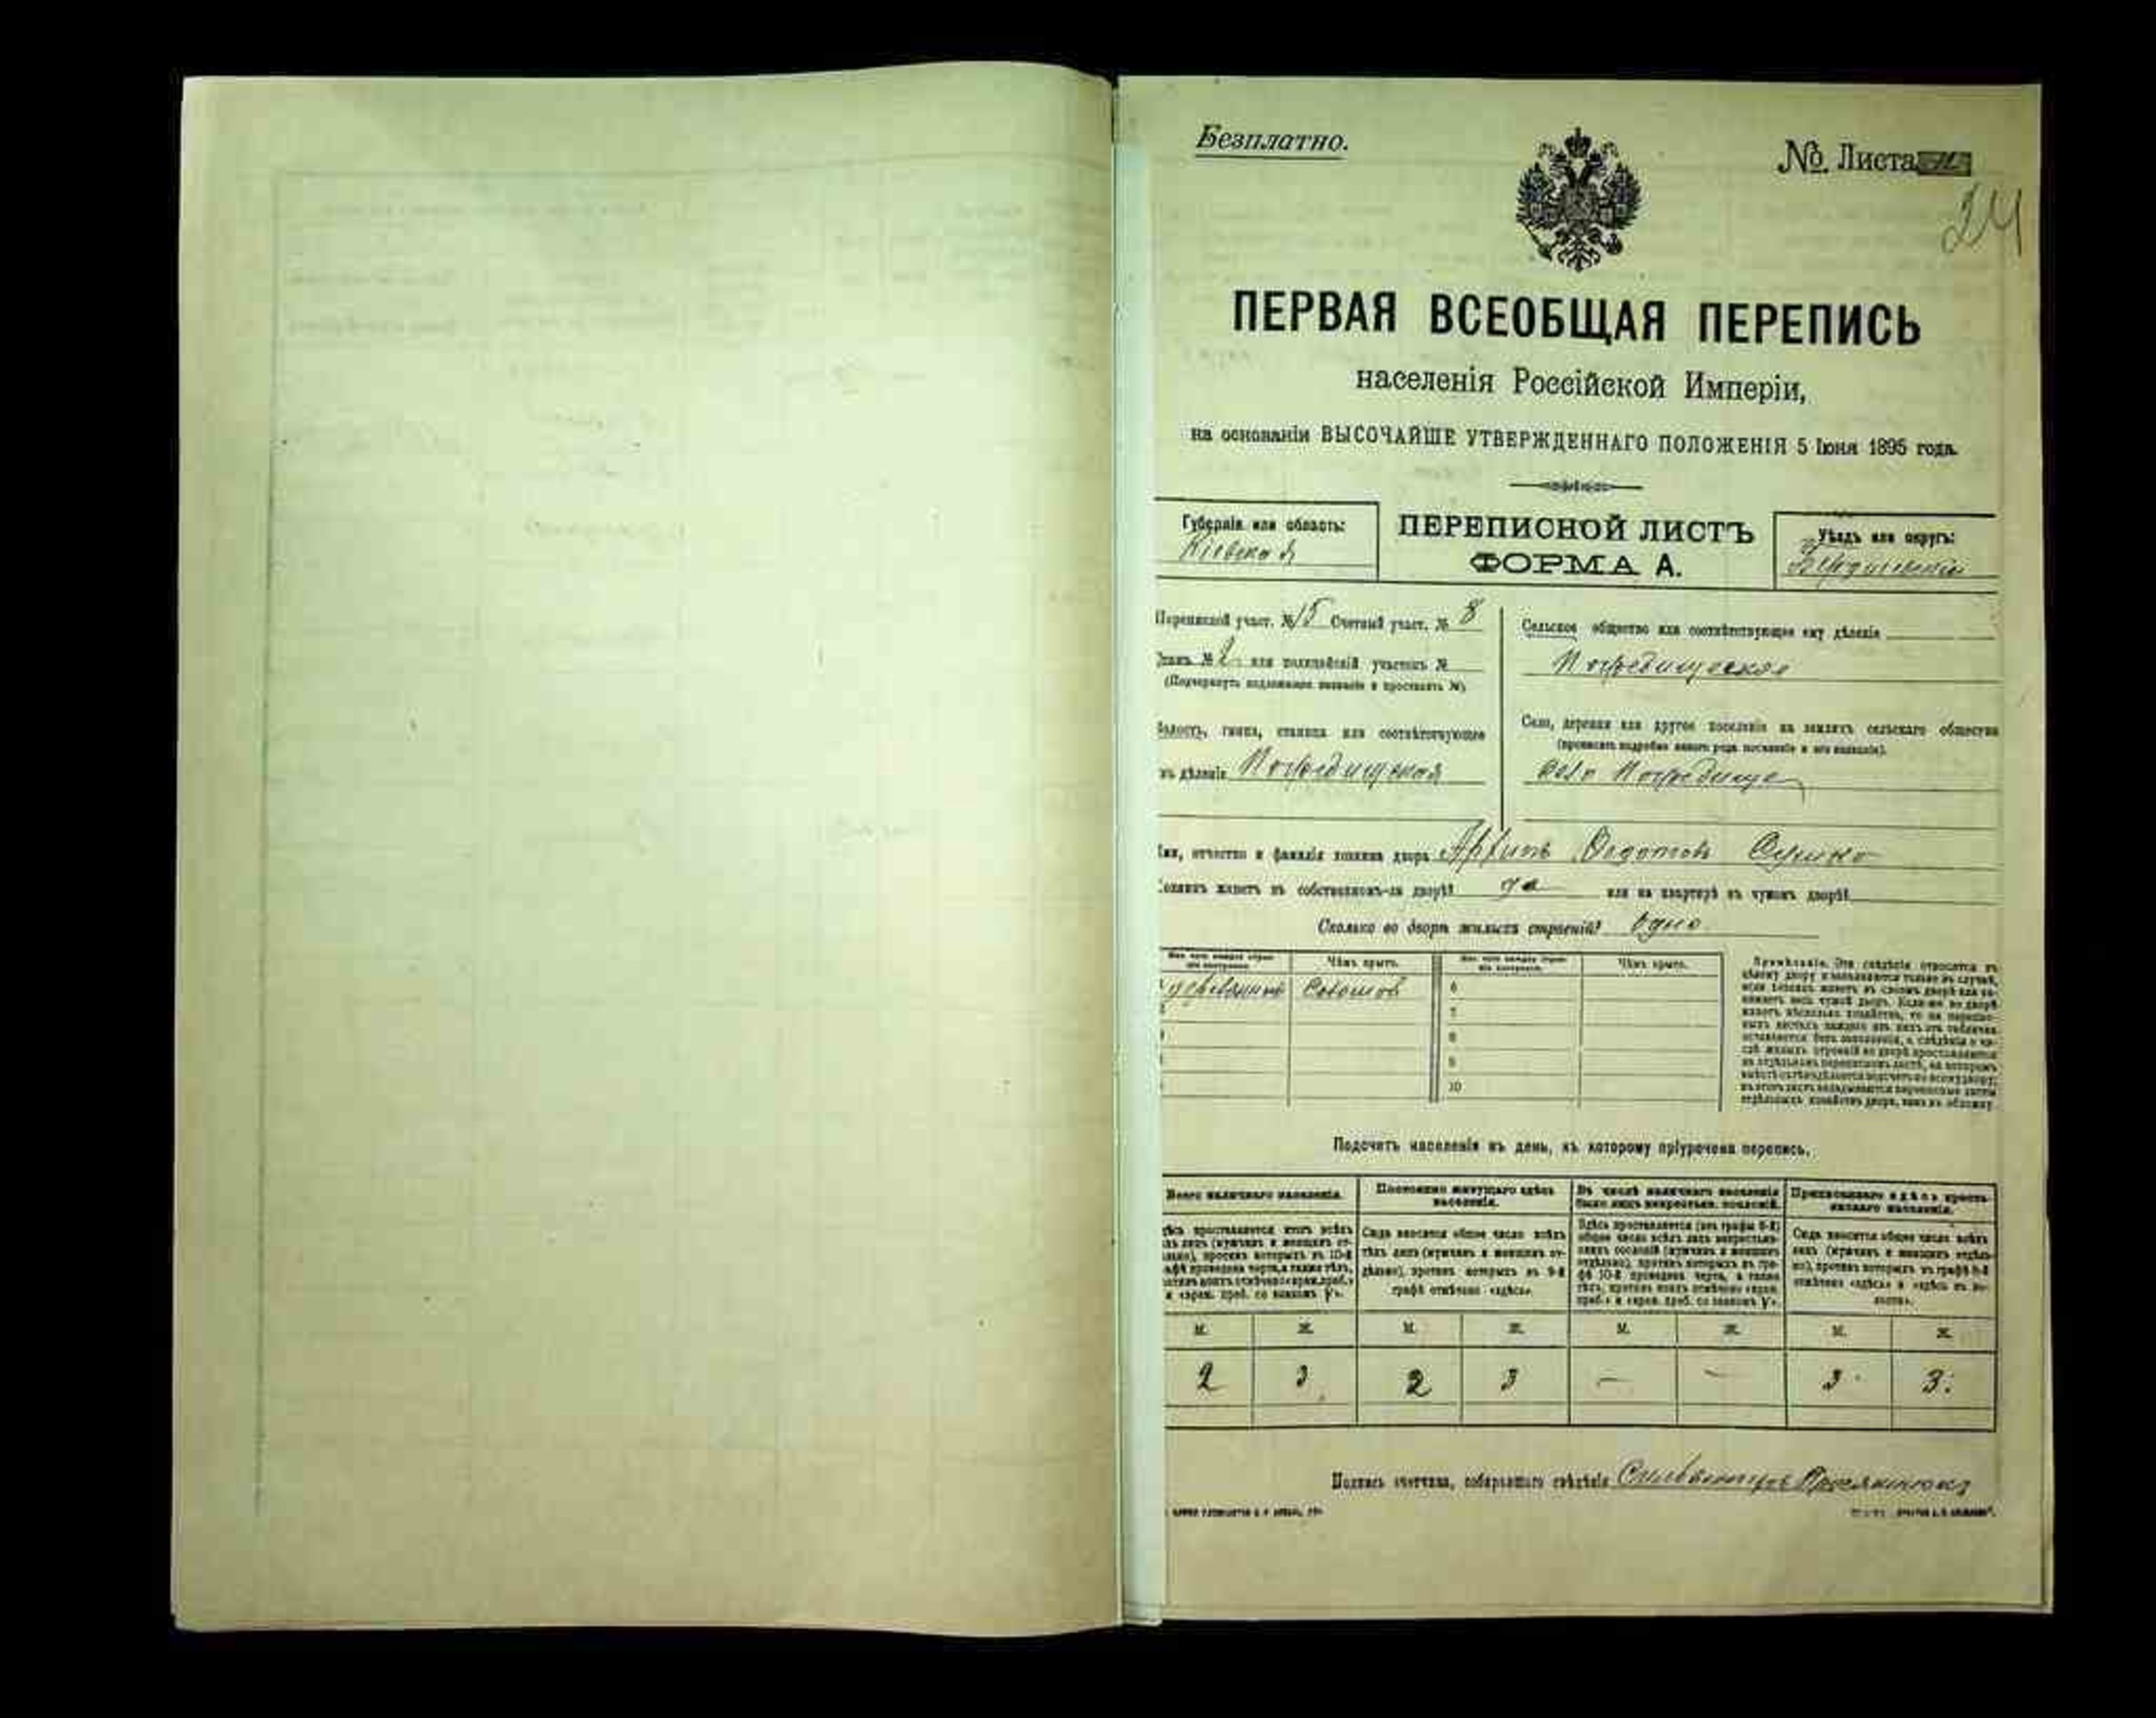 Безплатно.
№ Листа
24
ПЕРВАЯ ВСЕОБЩАЯ ПЕРЕПИСЬ
населенія Россійской Имперіи,
на основаніи ВЫСОЧАЙШЕ УТВЕРЖДЕННАГО ПОЛОЖЕНІЯ 5 Іюня 1895 года.
Губернія или область:
Кіевская
ПЕРЕПИСНОЙ ЛИСТЪ
ФОРМА А.
Уѣздъ или округъ:
Бердичевскій
Переписной участ. № 15 Счетный участ. № 8
Станъ № 2 или полицейскій участокъ №
(Подчеркнуть подлежащее названіе и проставить №).
Волость, гмина, станица или соотвѣтствующее
имъ дѣленіе Погребищенская
Сельское общество или соотвѣтствующее ему дѣленіе
Село, деревня или другое поселеніе на земляхъ сельскаго общества
(прописать подробно какого рода поселеніе и его названіе).
село Погребище
Имя, отчество и фамилія хозяина двора Архипъ Ѳедотовъ
Хозяинъ живетъ въ собственномъ-ли дворѣ? да или на квартирѣ въ чужомъ дворѣ?
Сколько во дворѣ жилыхъ строеній? одно
Изъ чего каждое строеніе построено. Чѣмъ крыто. Изъ чего каждое строеніе построено. Чѣмъ крыто.
соломой 6
7
8
9
10
Примѣчаніе. Эти свѣдѣнія относятся къ
цѣлому двору и заполняются только въ случаѣ,
если хозяинъ живетъ въ своемъ дворѣ или за-
нимаетъ весь чужой дворъ. Если-же во дворѣ
живетъ нѣсколько хозяйствъ, то на перепис-
ныхъ листахъ каждаго изъ нихъ эта табличка
оставляется безъ заполненія, а свѣдѣнія о чи-
слѣ жилыхъ строеній во дворѣ проставляются
на отдѣльномъ переписномъ листѣ, на которомъ
вмѣстѣ съ тѣмъ дѣлается подсчетъ по всему двору;
въ этотъ листъ вкладываются переписные листы
отдѣльныхъ хозяйствъ двора, какъ въ обложку.
Подсчетъ населенія въ день, къ которому пріурочена перепись.
Всего наличнаго населенія.
Постоянно живущаго здѣсь населенія.
Въ числѣ наличнаго населенія было лицъ некрестьян. сословій.
Приписаннаго здѣсь крестьянскаго населенія.
Сюда вносится общее число всѣхъ
тѣхъ лицъ (мужчинъ и женщинъ от-
дѣльно), противъ которыхъ въ 9-й
графѣ отмѣчено «здѣсь».
Здѣсь проставляется (изъ графы 6-й)
общее число всѣхъ лицъ некрестьян-
скихъ сословій (мужчинъ и женщинъ
отдѣльно), противъ которыхъ въ гра-
фѣ 10-й проведена черта, а также
тѣхъ, противъ коихъ отмѣчено «врем.
преб.» и «врем. преб. со знакомъ V».
Сюда вносится общее число всѣхъ
лицъ (мужчинъ и женщинъ отдѣль-
но), противъ которыхъ въ графѣ 8-й
отмѣчено «здѣсь» и «здѣсь въ во-
лости».
М. Ж. М. Ж. М. Ж. М. Ж.
2 3 2 3 — — 3 3.
Подпись счетчика, собиравшаго свѣдѣнія